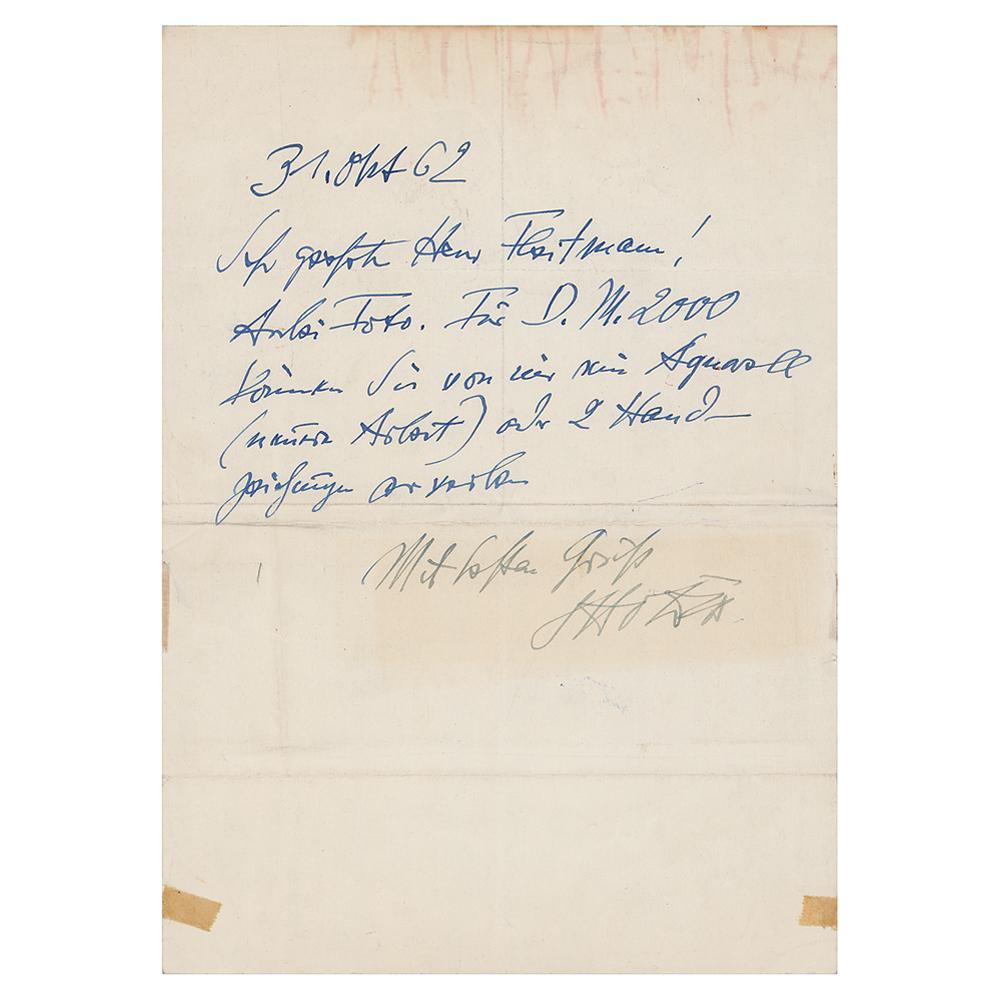 31. Okt 62
Sehr geehrter Herr Fleitmann!
Anbei Foto. Für D.M. 2000
können Sie von mir ein Aquarell
(neuere Arbeit) oder 2 Hand-
zeichnungen erwerben
Mit besten Gruß